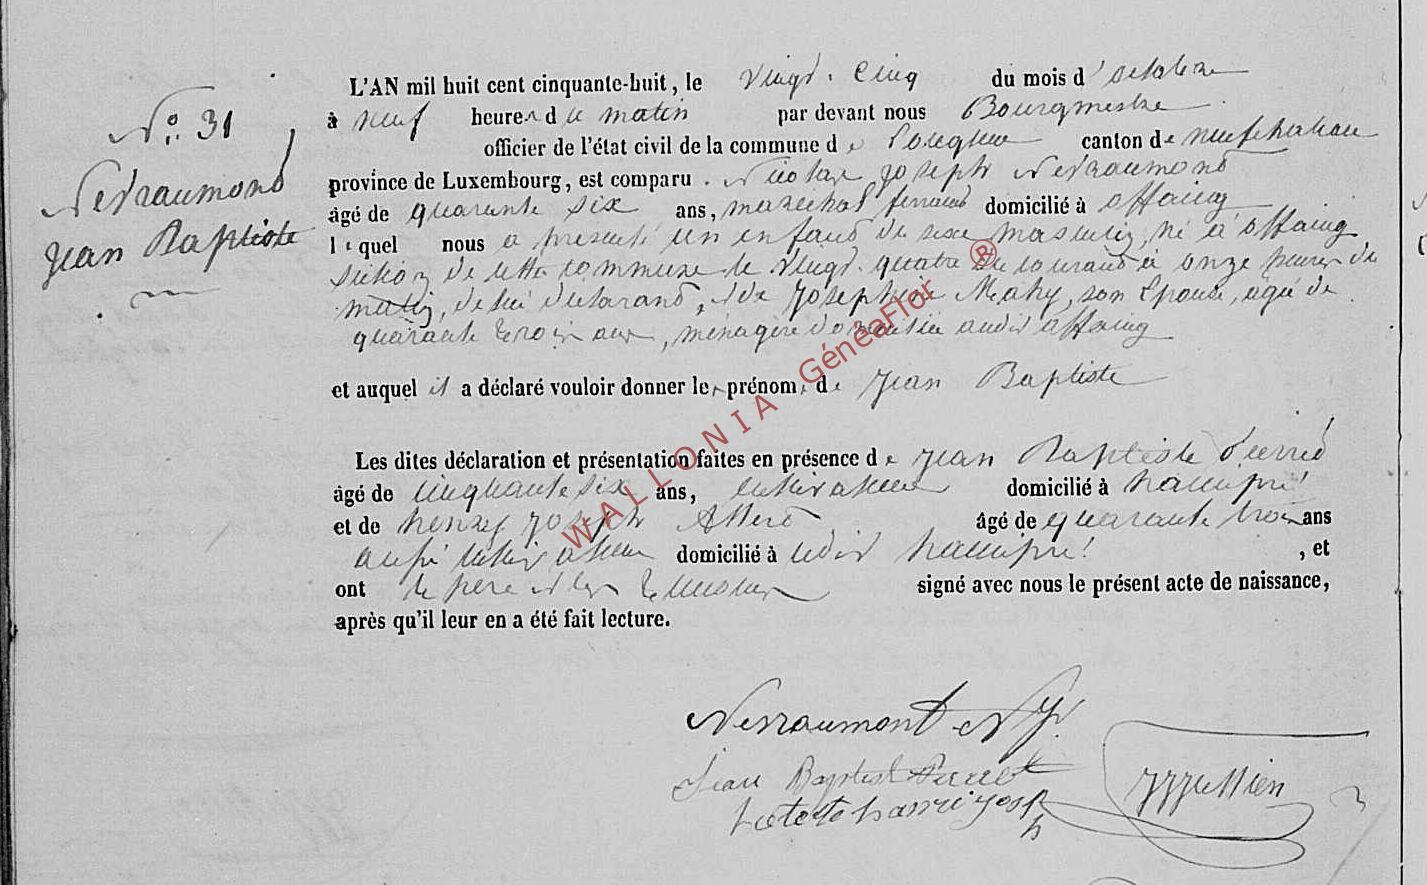 N° 31
Nevraumond
Jean Baptiste
L'AN mil huit cent cinquante-huit, le vingt-cinq du mois d'octobre
à neuf heures du matin par devant nous Bourgmestre
officier de l'état civil de la commune de Longlier canton de neufchateau
province de Luxembourg, est comparu Nicolas Joseph Nevraumond
âgé de quarante six ans, maréchal ferrand domicilié à offaing
lequel nous a présenté un enfand du sexe masculin, né à offaing
section de cette commune le vingt-quatre du courand à onze heures du
matin, de lui déclarand, et de Josephine Mahy, son Epouse, agée de
quarante trois ans, ménagère domiciliée audit offaing
et auquel il a déclaré vouloir donner le prénom de Jean Baptiste
Les dites déclaration et présentation faites en présence de Jean Baptiste Pierret
âgé de cinquante six ans, cultivateur domicilié à hamipré
et de henry Joseph âgé de quarante trois ans
aussi cultivateur domicilié à audit hamipré, et
ont le père et les témoins signé avec nous le présent acte de naissance,
après qu'il leur en a été fait lecture.
Nevraumont N J
Jean Baptist Pierret
henri Josph
WALLONIA GénéaFlor ®